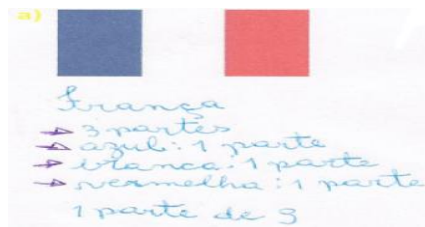 a)
França
3 partes
azul: 1 parte
branca: 1 parte
vermelha: 1 parte
1 parte de 3